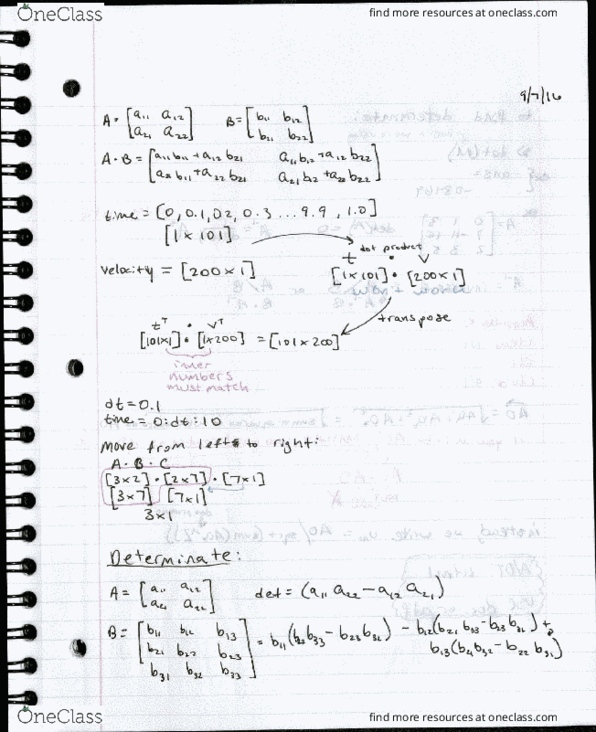 OneClass
find more resources at oneclass.com
9/7/16
A = [a11 a12 B = [b11 b12
a21 a22] b21 b22]
A · B = [a11 b11 + a12 b21 a11 b12 + a12 b22
a21 b11 + a22 b21 a21 b2 + a22 b22]
time = [0, 0.1, 02, 0.3 ... 9.9, 1.0]
[1 x 101]
dot product
t · V
velocity = [200 x 1] [1x101] · [200 x 1]
transpose
tᵀ · Vᵀ
[101x1] · [1x200] = [101 x 200]
inner
numbers
must match
dt = 0.1
time = 0:dt:10
move from left to right:
A · B · C
[3x2] · [2x7] · [7x1]
[3x7] [7x1]
3x1
Determinate:
A = [a11 a12 det = (a11 a22 - a12 a21)
a21 a22]
B = [b11 b12 b13 = b11(b22 b33 - b23 b32) - b12(b21 b33 - b23 b31) +
b21 b22 b23 b13(b21 b32 - b22 b31)
b31 b32 b33]
OneClass
find more resources at oneclass.com